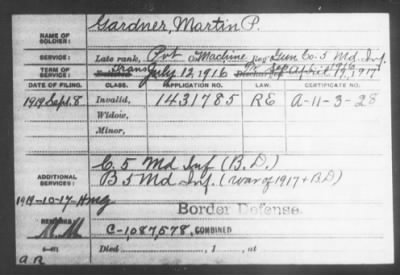 Gardner, Martin P.
NAME OF SOLDIER:
SERVICE: Late rank, Pvt Co. Machine Reg't Gun Co. 5 Md. Inf.
TERM OF SERVICE: Enlisted July 12, 1916 Discharged April 19, 1917
DATE OF FILING. CLASS. APPLICATION NO. LAW. CERTIFICATE NO.
1919 Sept. 8 Invalid, 1431785 R6 A-11-3-28
Widow,
Minor,
C. 5 Md Inf (B.D.)
ADDITIONAL SERVICES: B 5 Md Inf. (War of 1917 + B.D.)
1919-10-17-Hmg
Border Defense.
REMARKS:
C-1,087,578, COMBINED
Died , 1 , at